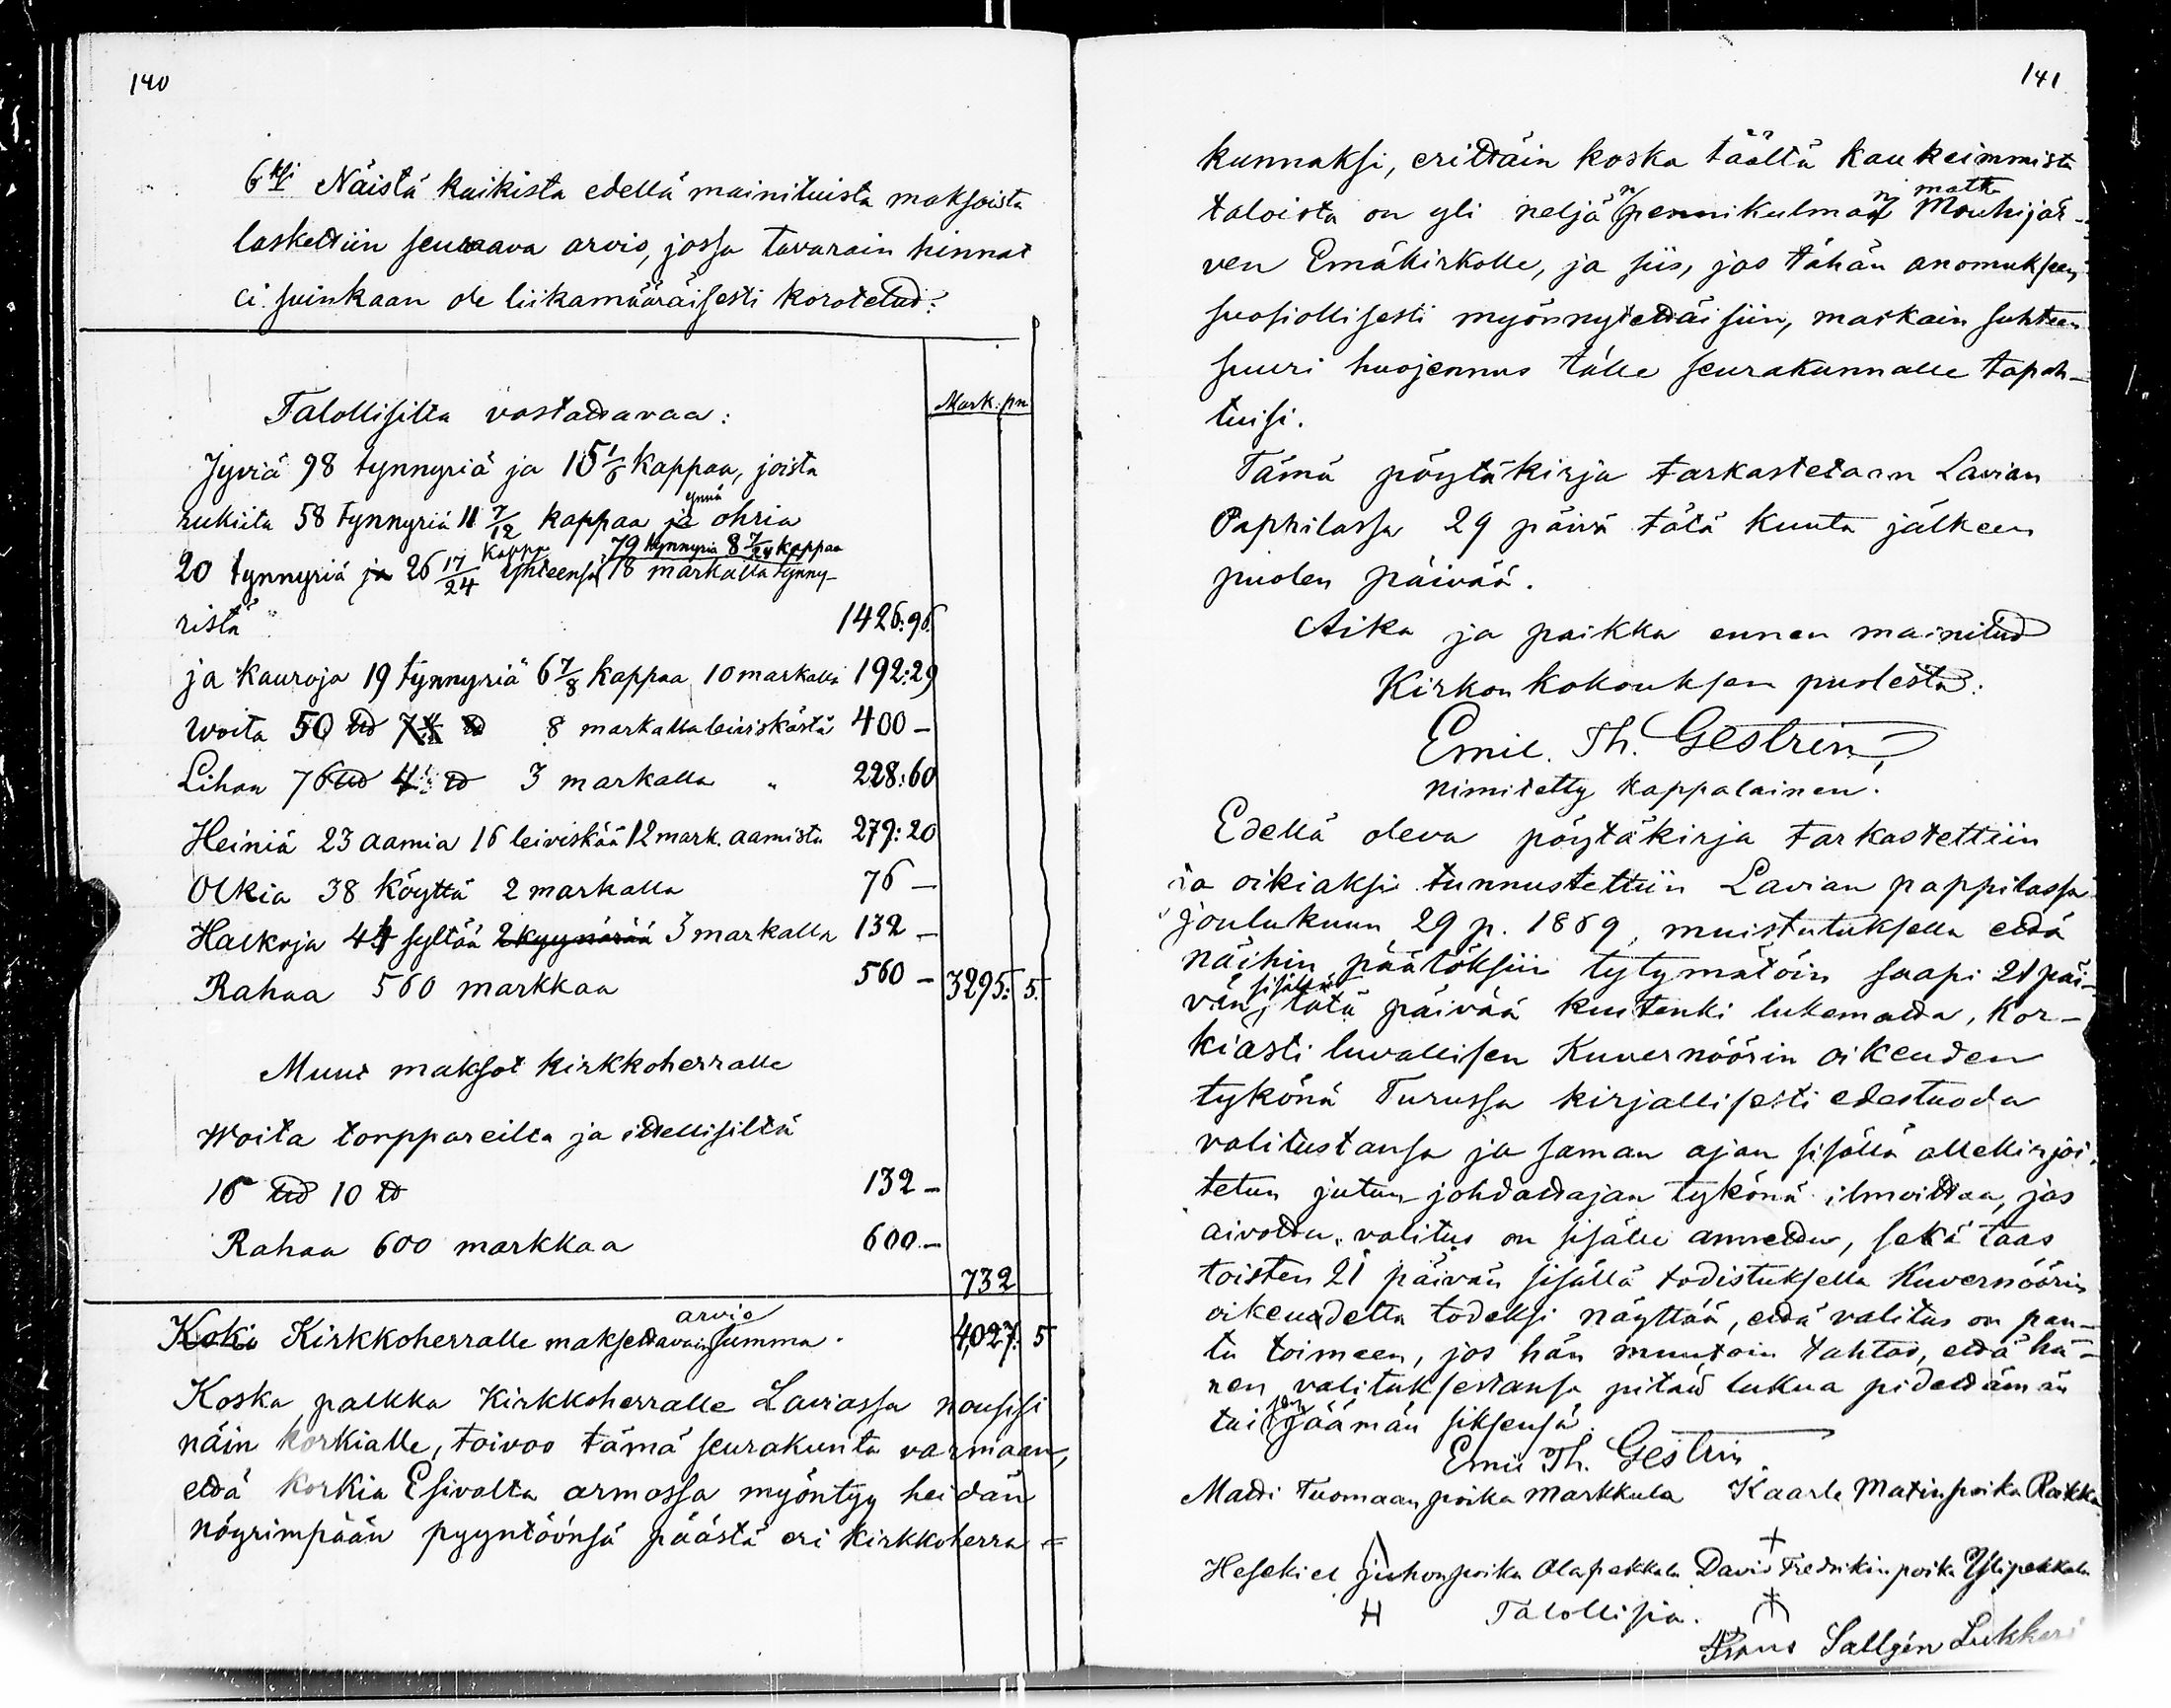 140
6ksi Näistä kaikista edellä mainituista maksoista
laskettiin seuraava arvio, jossa tavarain hinnat
ei suinkaan ole liikamääräisesti korotetud:
Mark. pn.
Talollisilta vastattavaa:
Jyviä 98 tynnyriä ja 15 1/6 kappaa, joista
rukiita 58 tynnyriä 11 7/12 kappaa ja ynnä ohria
20 tynnyriä ja 26 17/24 kappa yhteensä 79 tynnyriä 8 7/24 kappaa 18 markalla tynny-
ristä 1426:96.
ja kauroja 19 tynnyriä 6 7/8 kappaa 10 markalla 192:29
Woita 50 lld 8 markalla leiviskästä 400 –
Lihaa 76 lld 4 ld 3 markalla " 228:60
Heiniä 23 aamia 16 leiviskää 12 mark. aamista 279:20
Olkia 38 köyttä 2 markalla 76 –
Halkoja 44 syltää 2 kyynärää 3 markalla 132 –
Rahaa 560 markkaa 560 – 3295: 5.
Muut maksot kirkkoherralle
Woita torppareilta ja itsellisiltä
16 lld 10 ld 132 –
Rahaa 600 markkaa 600. –
732
Koko Kirkkoherralle maksettavain arvio summa. 4,027: 5
Koska palkka Kirkkoherralle Laviassa nousisi
näin korkialle, toivoo tämä seurakunta varmaan,
että korkia Esivalta armossa myöntyy heidän
nöyrimpään pyyntöönsä päästä eri kirkkoherra=
141
kunnaksi, erittäin koska täältä kaukeimmista
taloista on yli neljän pennikulman matka Mouhijär-
ven Emäkirkolle, ja siis, jos tähän anomukseen
suosiollisesti myönnytettäisiin, matkain suhteen
suuri huojennus tälle seurakunnalle tapah-
tuisi.
Tämä pöytäkirja tarkastetaan Lavian
Paphilassa 29 päivä tätä kuuta jälkeen
puolen päivää.
Aika ja paikka ennen mainitud
Kirkon kokouksen puolesta:
Emil. Th. Gestrin,
nimitetty kappalainen.
Edellä oleva pöytäkirja tarkastettiin
ja oikiaksi tunnustettiin Lavian pappilassa
Joulukuun 29 p. 1869, muistutuksella että
näihin päätöksiin tytymätöin saapi 21 päi-
vän sisällä tätä päivää kuitenki lukematta, Kor-
kiasti luvallisen Kuvernöörin oikeuden
tykönä Turussa kirjallisesti edestuoda
valitustansa ja saman ajan sisällä allekirjoi-
tetun jutun johdattajan tykönä ilmoittaa, jos
aivottu valitus on sisälle annettu, sekä taas
toisten 21 päivän sisällä todistuksella Kuvernöörin
oikeudelta todeksi näyttää, että valitus on pan-
tu toimeen, jos hän muutoin tahtoo, että hä-
nen valituksestansa pitää lukua pidettämän
tai jäämän siksensä.
Emil Th. Gestrin
Matti Tuomaan poika Markkula Kaarle Matinpoika Raikka
Hesekiel Juhonpoika Alapekkala David Fredrikinpoika Ylipekkala
H Talollisia.
Frans Sallgén Lukkari